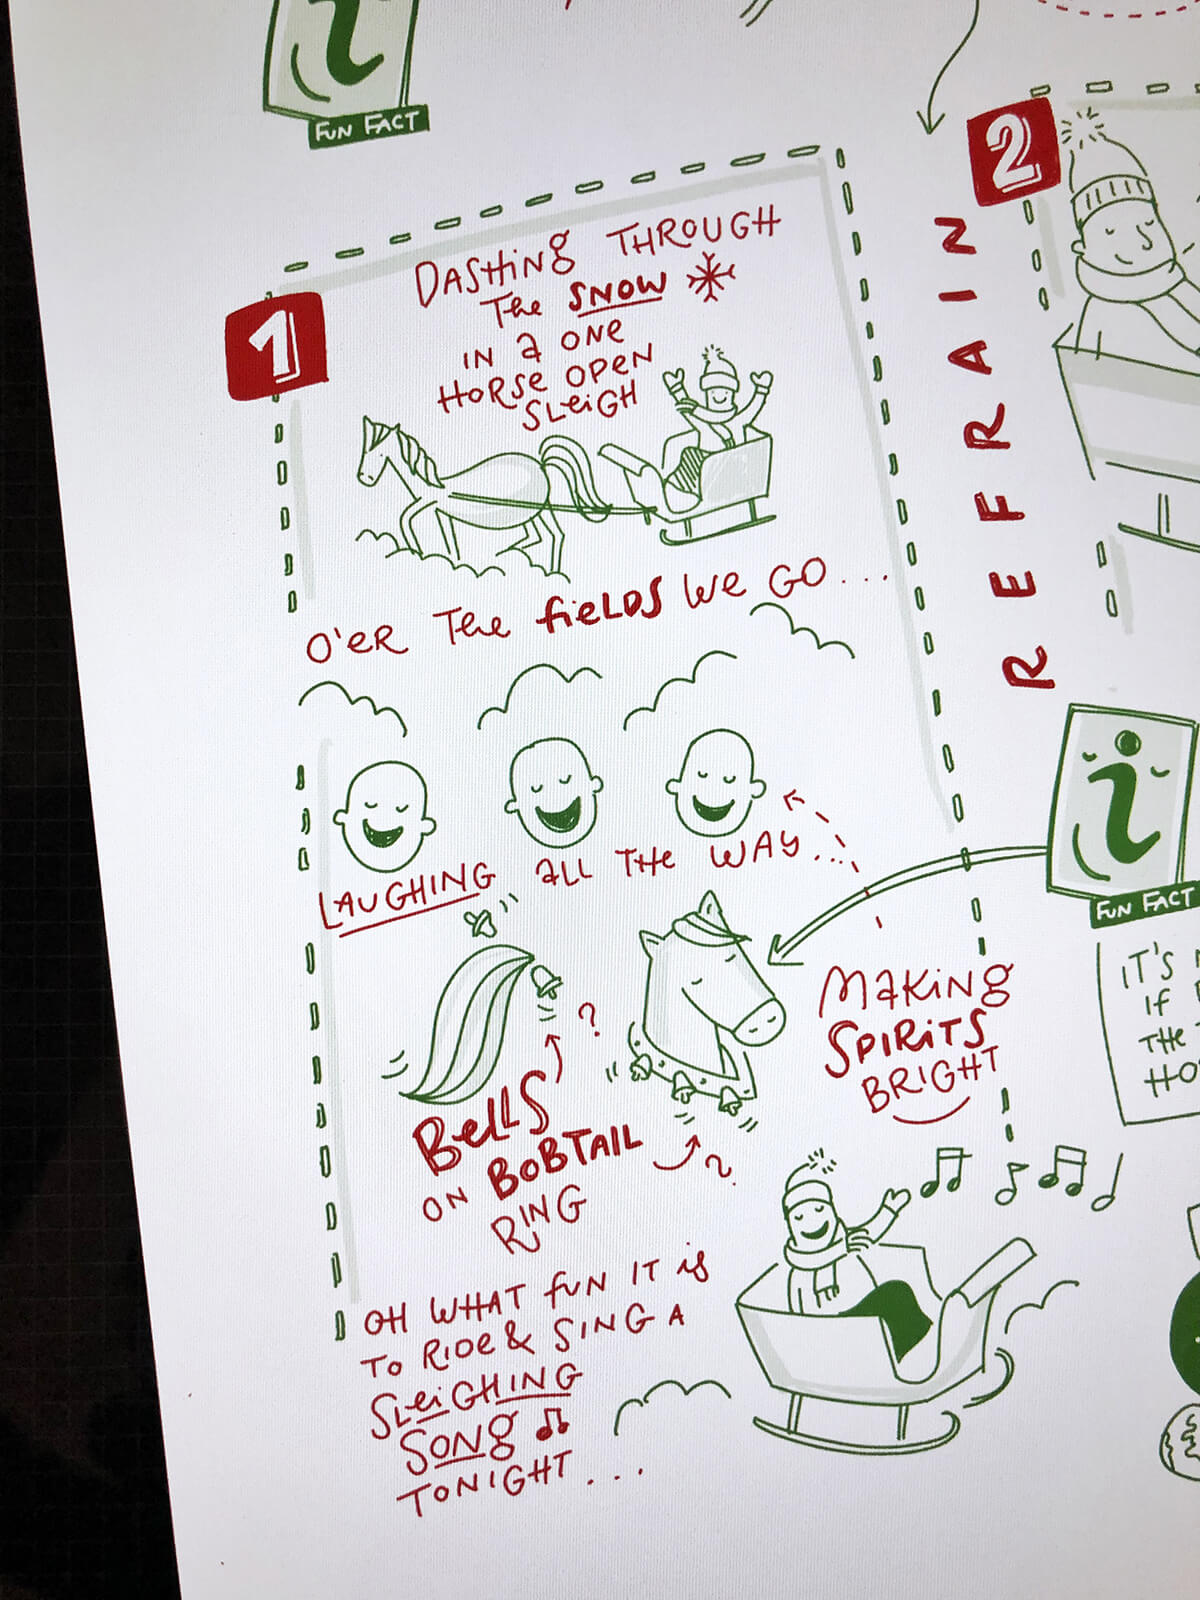 FUN FACT
1
DASHING THROUGH
THE SNOW
IN A ONE
HORSE OPEN
SLEIGH
O'ER THE FIELDS WE GO...
LAUGHING ALL THE WAY...
BELLS
ON BOBTAIL
RING
?
?
MAKING
SPIRITS
BRIGHT
OH WHAT FUN IT IS
TO RIDE & SING A
SLEIGHING
SONG
TONIGHT...
REFRAIN
2
i
FUN FACT
IT'S
IF
THE